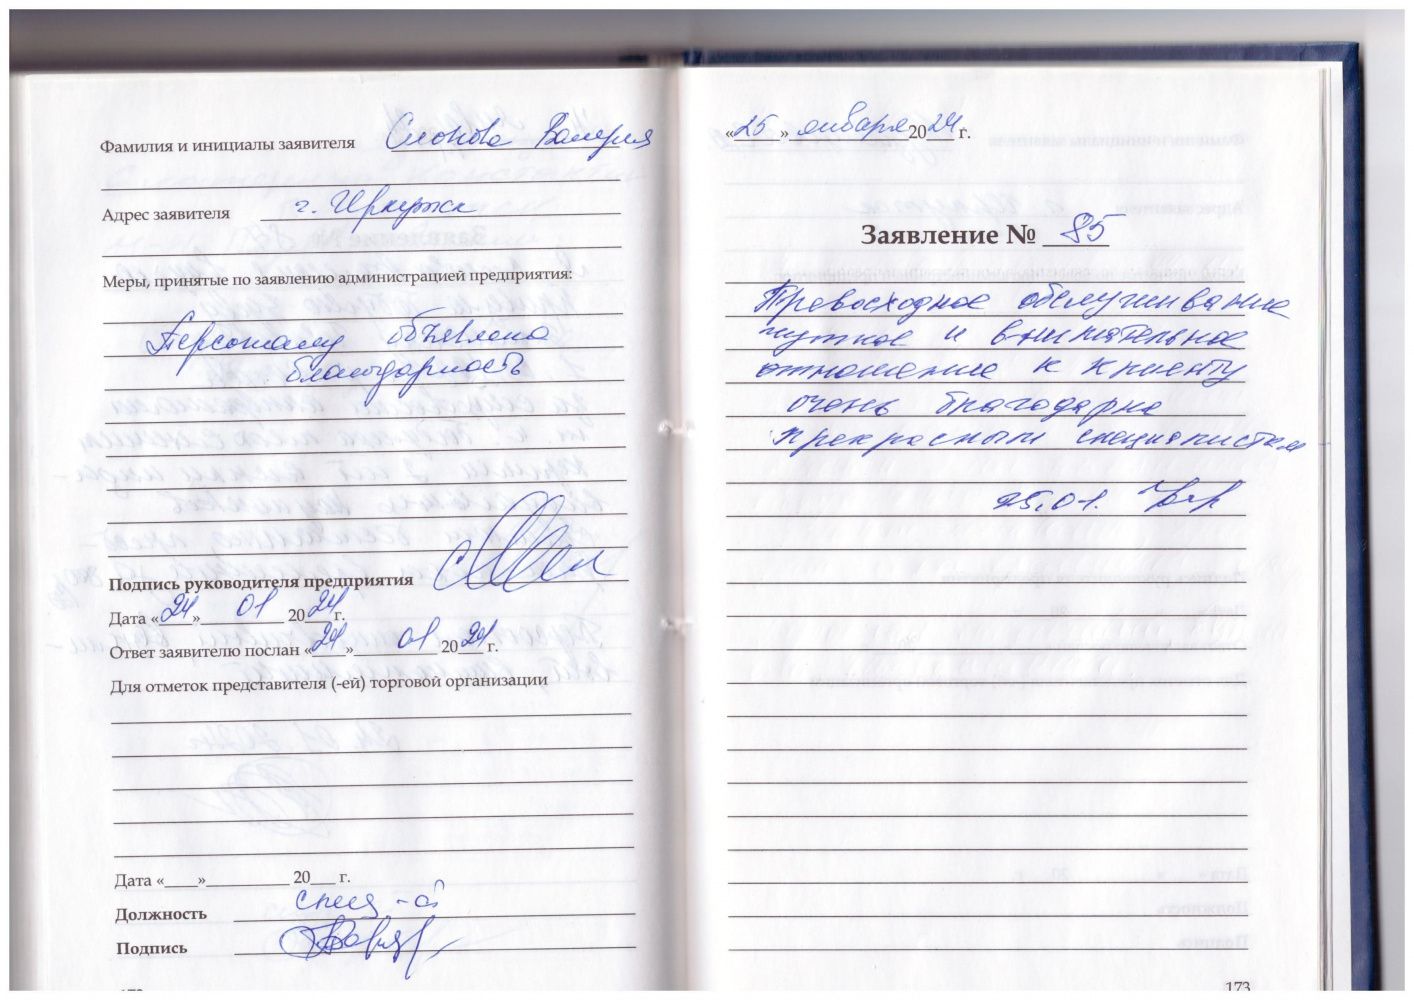 Фамилия и инициалы заявителя Слонова Валерия
Адрес заявителя г. Иркутск
Меры, принятые по заявлению администрацией предприятия:
Персоналу объявлена
благодарность
Подпись руководителя предприятия
Дата «24» 01 2024 г.
Ответ заявителю послан «24» 01 2024 г.
Для отметок представителя (-ей) торговой организации
Дата «____»__________ 20___ г.
Должность
Подпись
«25» января 2024 г.
Заявление № 85
Превосходное обслуживание
чуткое и внимательное
отношение к клиенту
очень благодарна
прекрасным специалистам
25.01.
173